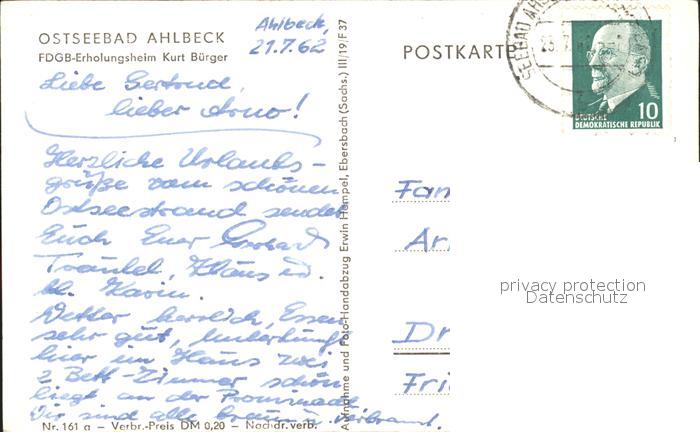 OSTSEEBAD AHLBECK
FDGB-Erholungsheim Kurt Bürger
Ahlbeck,
21.7.62
Liebe Gertrud,
lieber Arno!
Herzliche Urlaubs-
grüße vom schönen
Ostseestrand senden
Euch Euer Gerhard
Traudel, Klaus u.
kl. Karin.
Wetter herrlich, Essen
sehr gut, Unterkunft
hier im Haus
2 Bett-Zimmer schön
liegt an der Promenade
Wir sind alle braun u. verbrannt.
Nr. 161 a – Verbr.-Preis DM 0,20 – Nachdr. verb.
Aufnahme und Foto-Handabzug Erwin Hempel, Ebersbach (Sachs.) III/19/F 37
POSTKARTE
SEEBAD AHL
10
DEUTSCHE
DEMOKRATISCHE REPUBLIK
Fam
Ar
Dr
Fri
privacy protection
Datenschutz